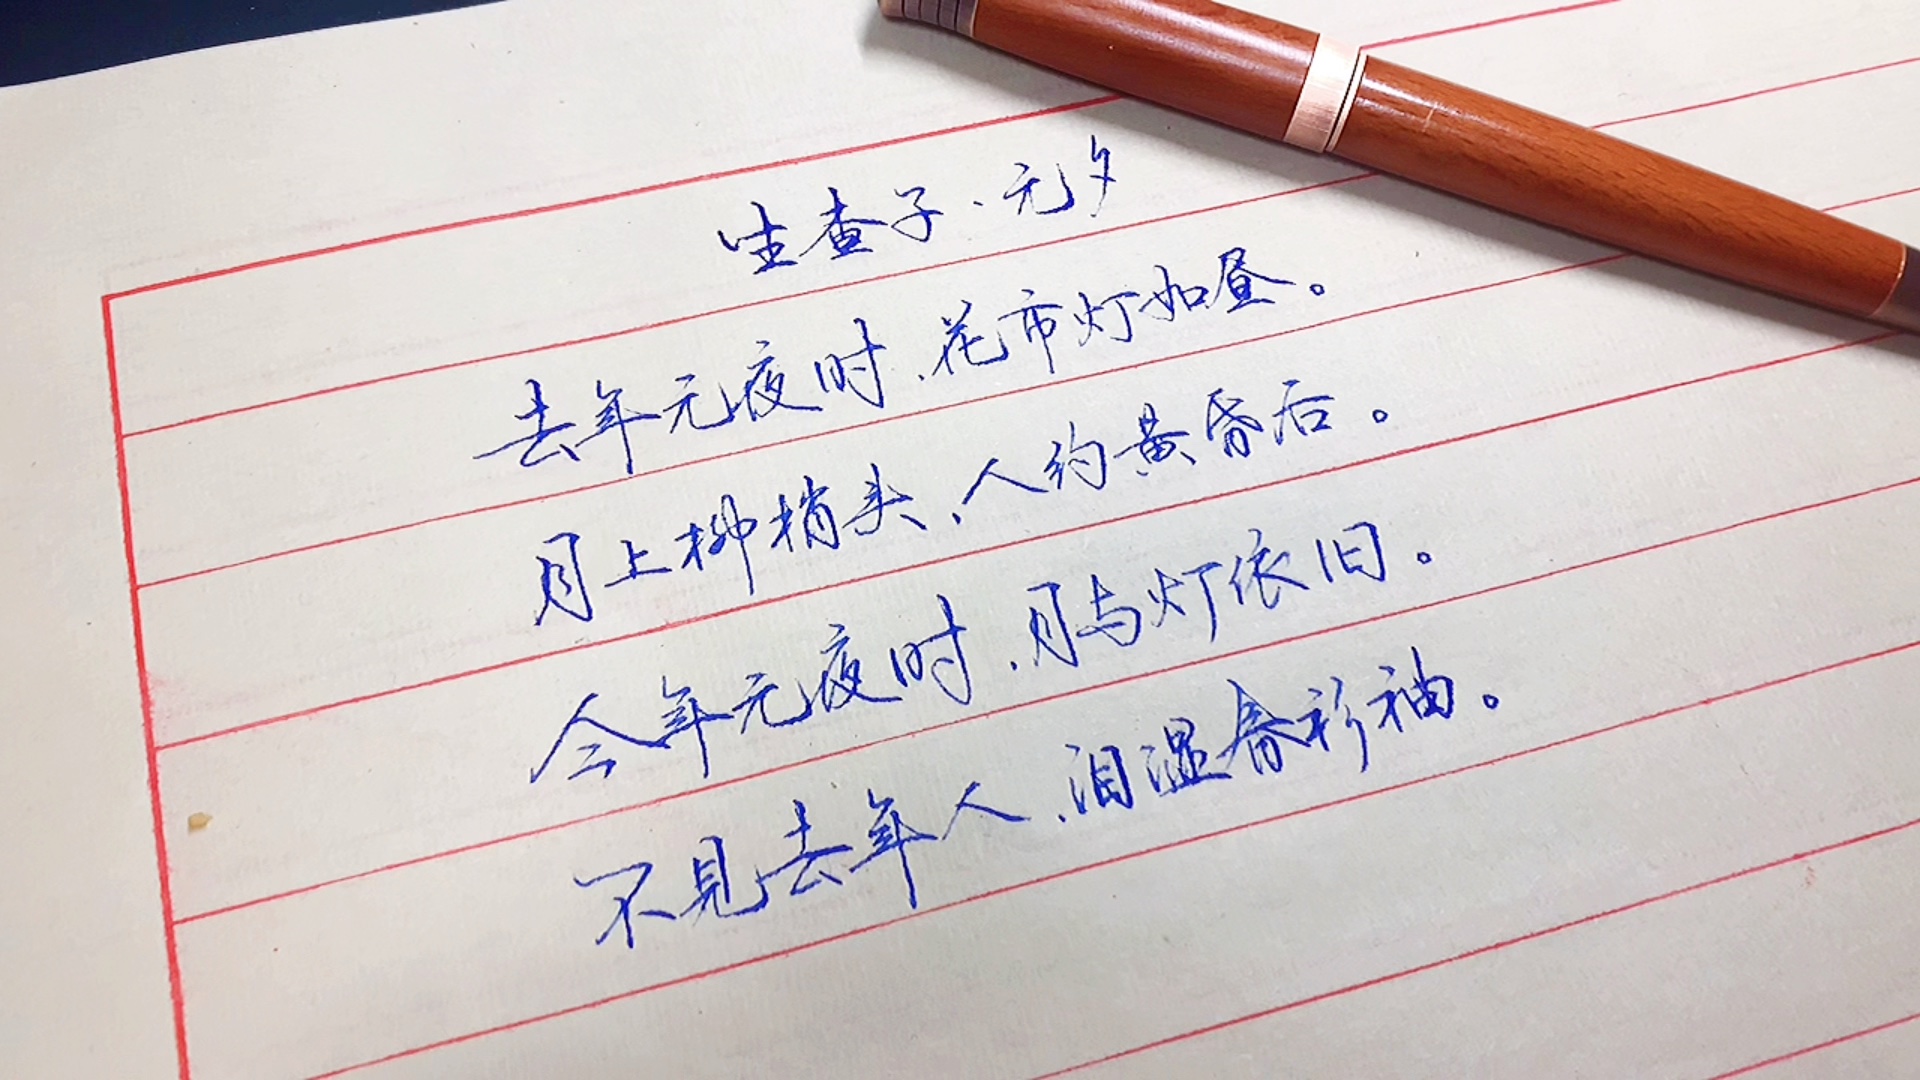 生查子·元夕
去年元夜时,花市灯如昼。
月上柳梢头,人约黄昏后。
今年元夜时,月与灯依旧。
不见去年人,泪湿春衫袖。